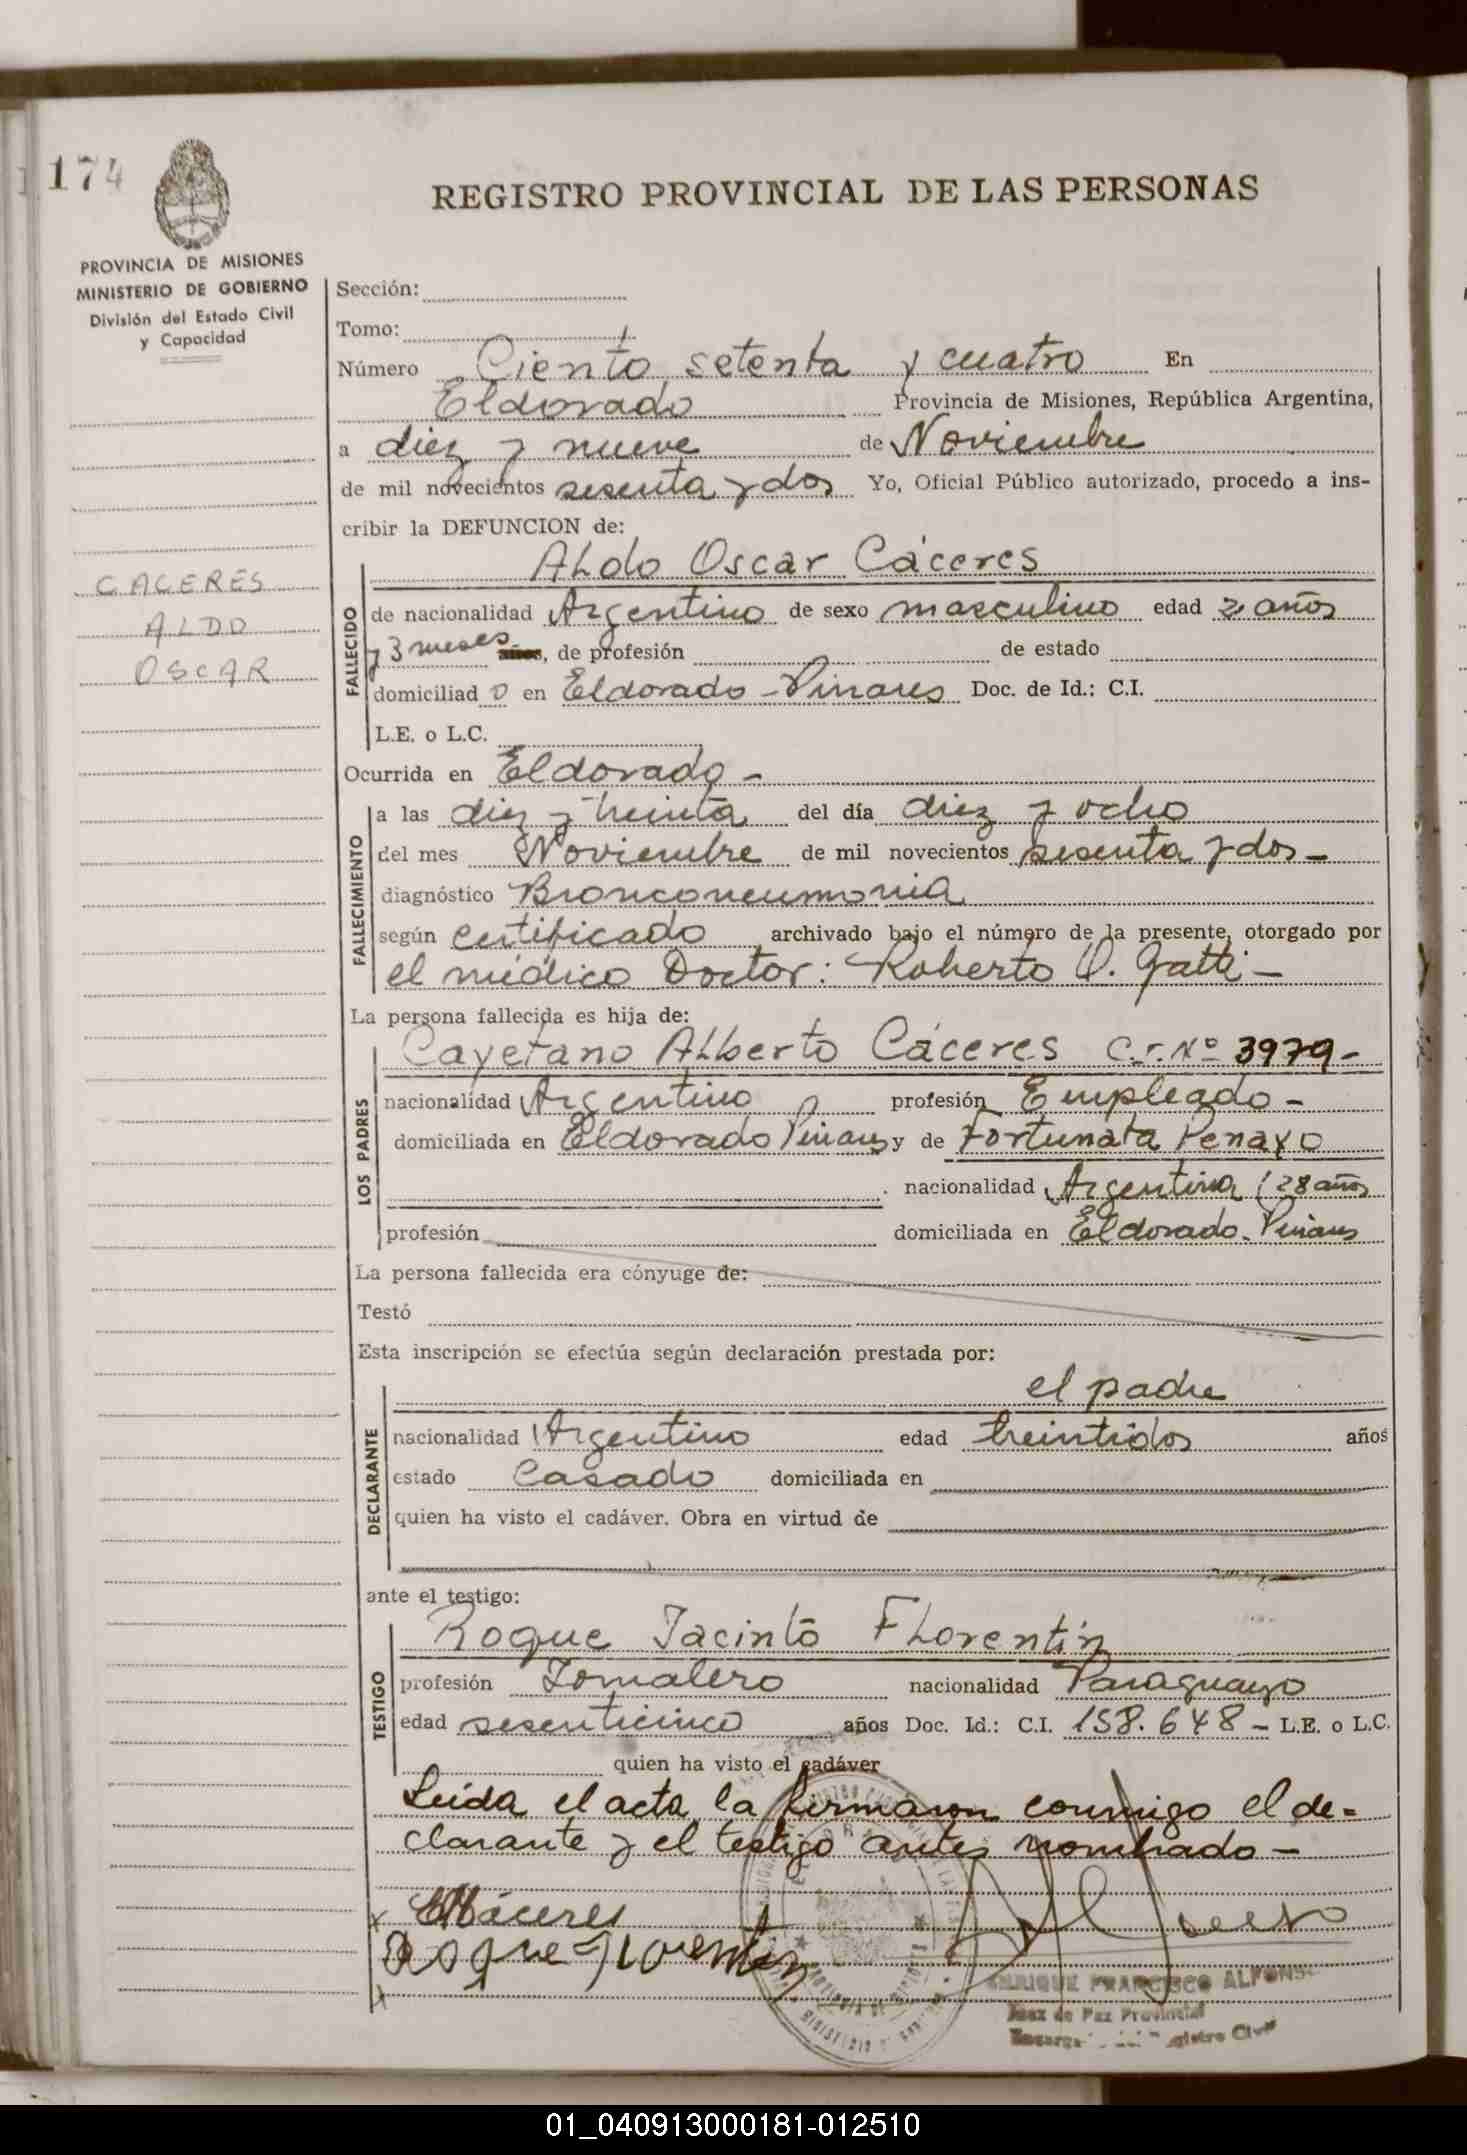 174
REGISTRO PROVINCIAL DE LAS PERSONAS
PROVINCIA DE MISIONES
MINISTERIO DE GOBIERNO
División del Estado Civil
y Capacidad
CACERES
ALDO
OSCAR
Sección:
Tomo:
Número Ciento setenta y cuatro En
Eldorado Provincia de Misiones, República Argentina,
a diez y nueve de Noviembre
de mil novecientos sesenta y dos Yo, Oficial Público autorizado, procedo a ins-
cribir la DEFUNCION de:
FALLECIDO
Aldo Oscar Cáceres
de nacionalidad Argentino de sexo masculino edad 2 años
y 3 meses años, de profesión de estado
domiciliad o en Eldorado - Pinares Doc. de Id.: C.I.
L.E. o L.C.
Ocurrida en Eldorado -
FALLECIMIENTO
a las diez y treinta del día diez y ocho
del mes Noviembre de mil novecientos sesenta y dos -
diagnóstico Bronconeumonia
según certificado archivado bajo el número de la presente, otorgado por
el médico Doctor: Roberto O. Gatti -
La persona fallecida es hija de:
LOS PADRES
Cayetano Alberto Cáceres C.I. Nº 3979 -
nacionalidad Argentino profesión Empleado -
domiciliada en Eldorado Pinares y de Fortunata Penayo
nacionalidad Argentina (28 años
profesión domiciliada en Eldorado - Pinares
La persona fallecida era cónyuge de:
Testó
Esta inscripción se efectúa según declaración prestada por:
DECLARANTE
el padre
nacionalidad Argentino edad treintidos años
estado Casado domiciliada en
quien ha visto el cadáver. Obra en virtud de
ante el testigo:
TESTIGO
Roque Jacinto Florentín
profesión Jornalero nacionalidad Paraguayo
edad sesenticinco años Doc. Id.: C.I. 158.648 - L.E. o L.C.
quien ha visto el cadáver
Leída el acta la firmaron conmigo el de=
clarante y el testigo antes nombrado -
x Cáceres
Roque Florentin
x
ENRIQUE FRANCISCO ALFONSO
Juez de Paz Provincial
01_040913000181-012510